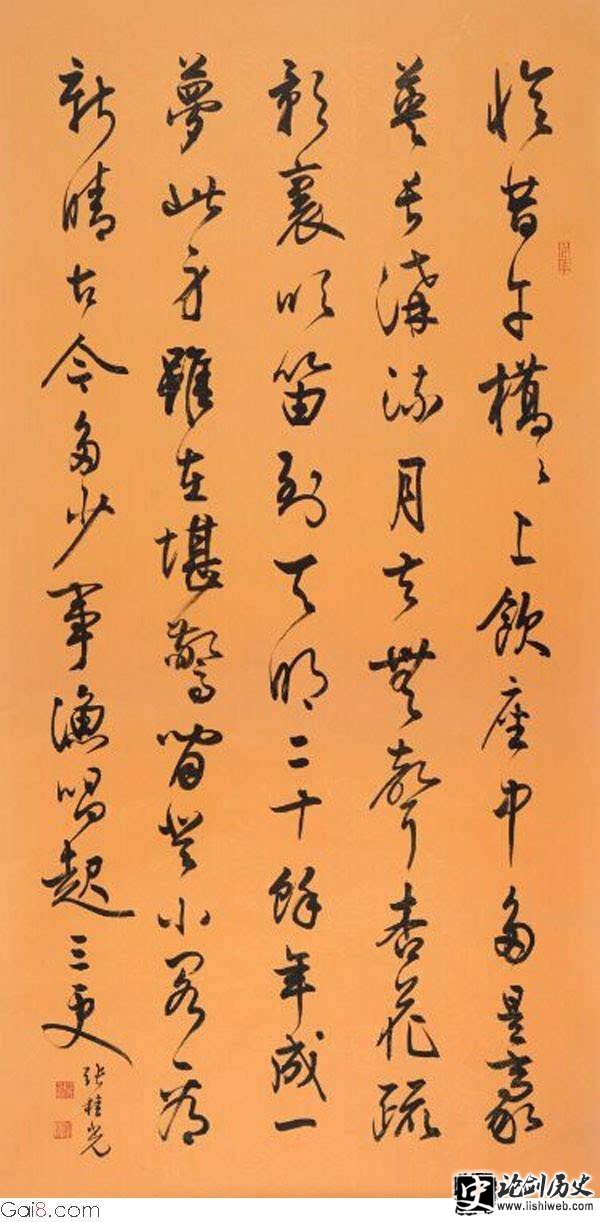 憶昔午橋々上飲座中多是豪
英長溝流月去無聲杏花疏
影裏吹笛到天明二十餘年成一
夢此身雖在堪驚閒登小閣看
新晴古今多少事漁唱起三更
張桂光
Gai8.com
史 论剑历史
www.iishiweb.com